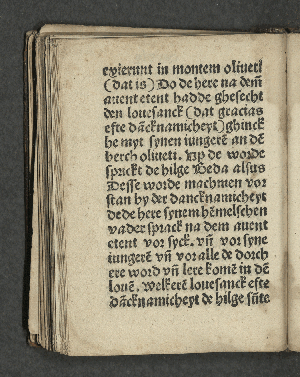 exierunt in montem oliueti
(dat is) Do de here na dem̄
auent etent hadde ghesecht
den louesanck (dat gracias
efte dāck namicheyt) ghinck
he myt synen iungerē an dē
berch oliueti. Up de worde
sprickt de hilge Beda alsus
Desse worde machmen vor
stan by der danck namicheyt
de de here synem hēmelschen
vader sprack na dem auent
etent vor syck. vn̄ vor syne
iungerē vn̄ vor alle de dorch
ere word vn̄ lere komē in dē
louē. Welkerē louesanck efte
dācknamicheyt de hilge sūte